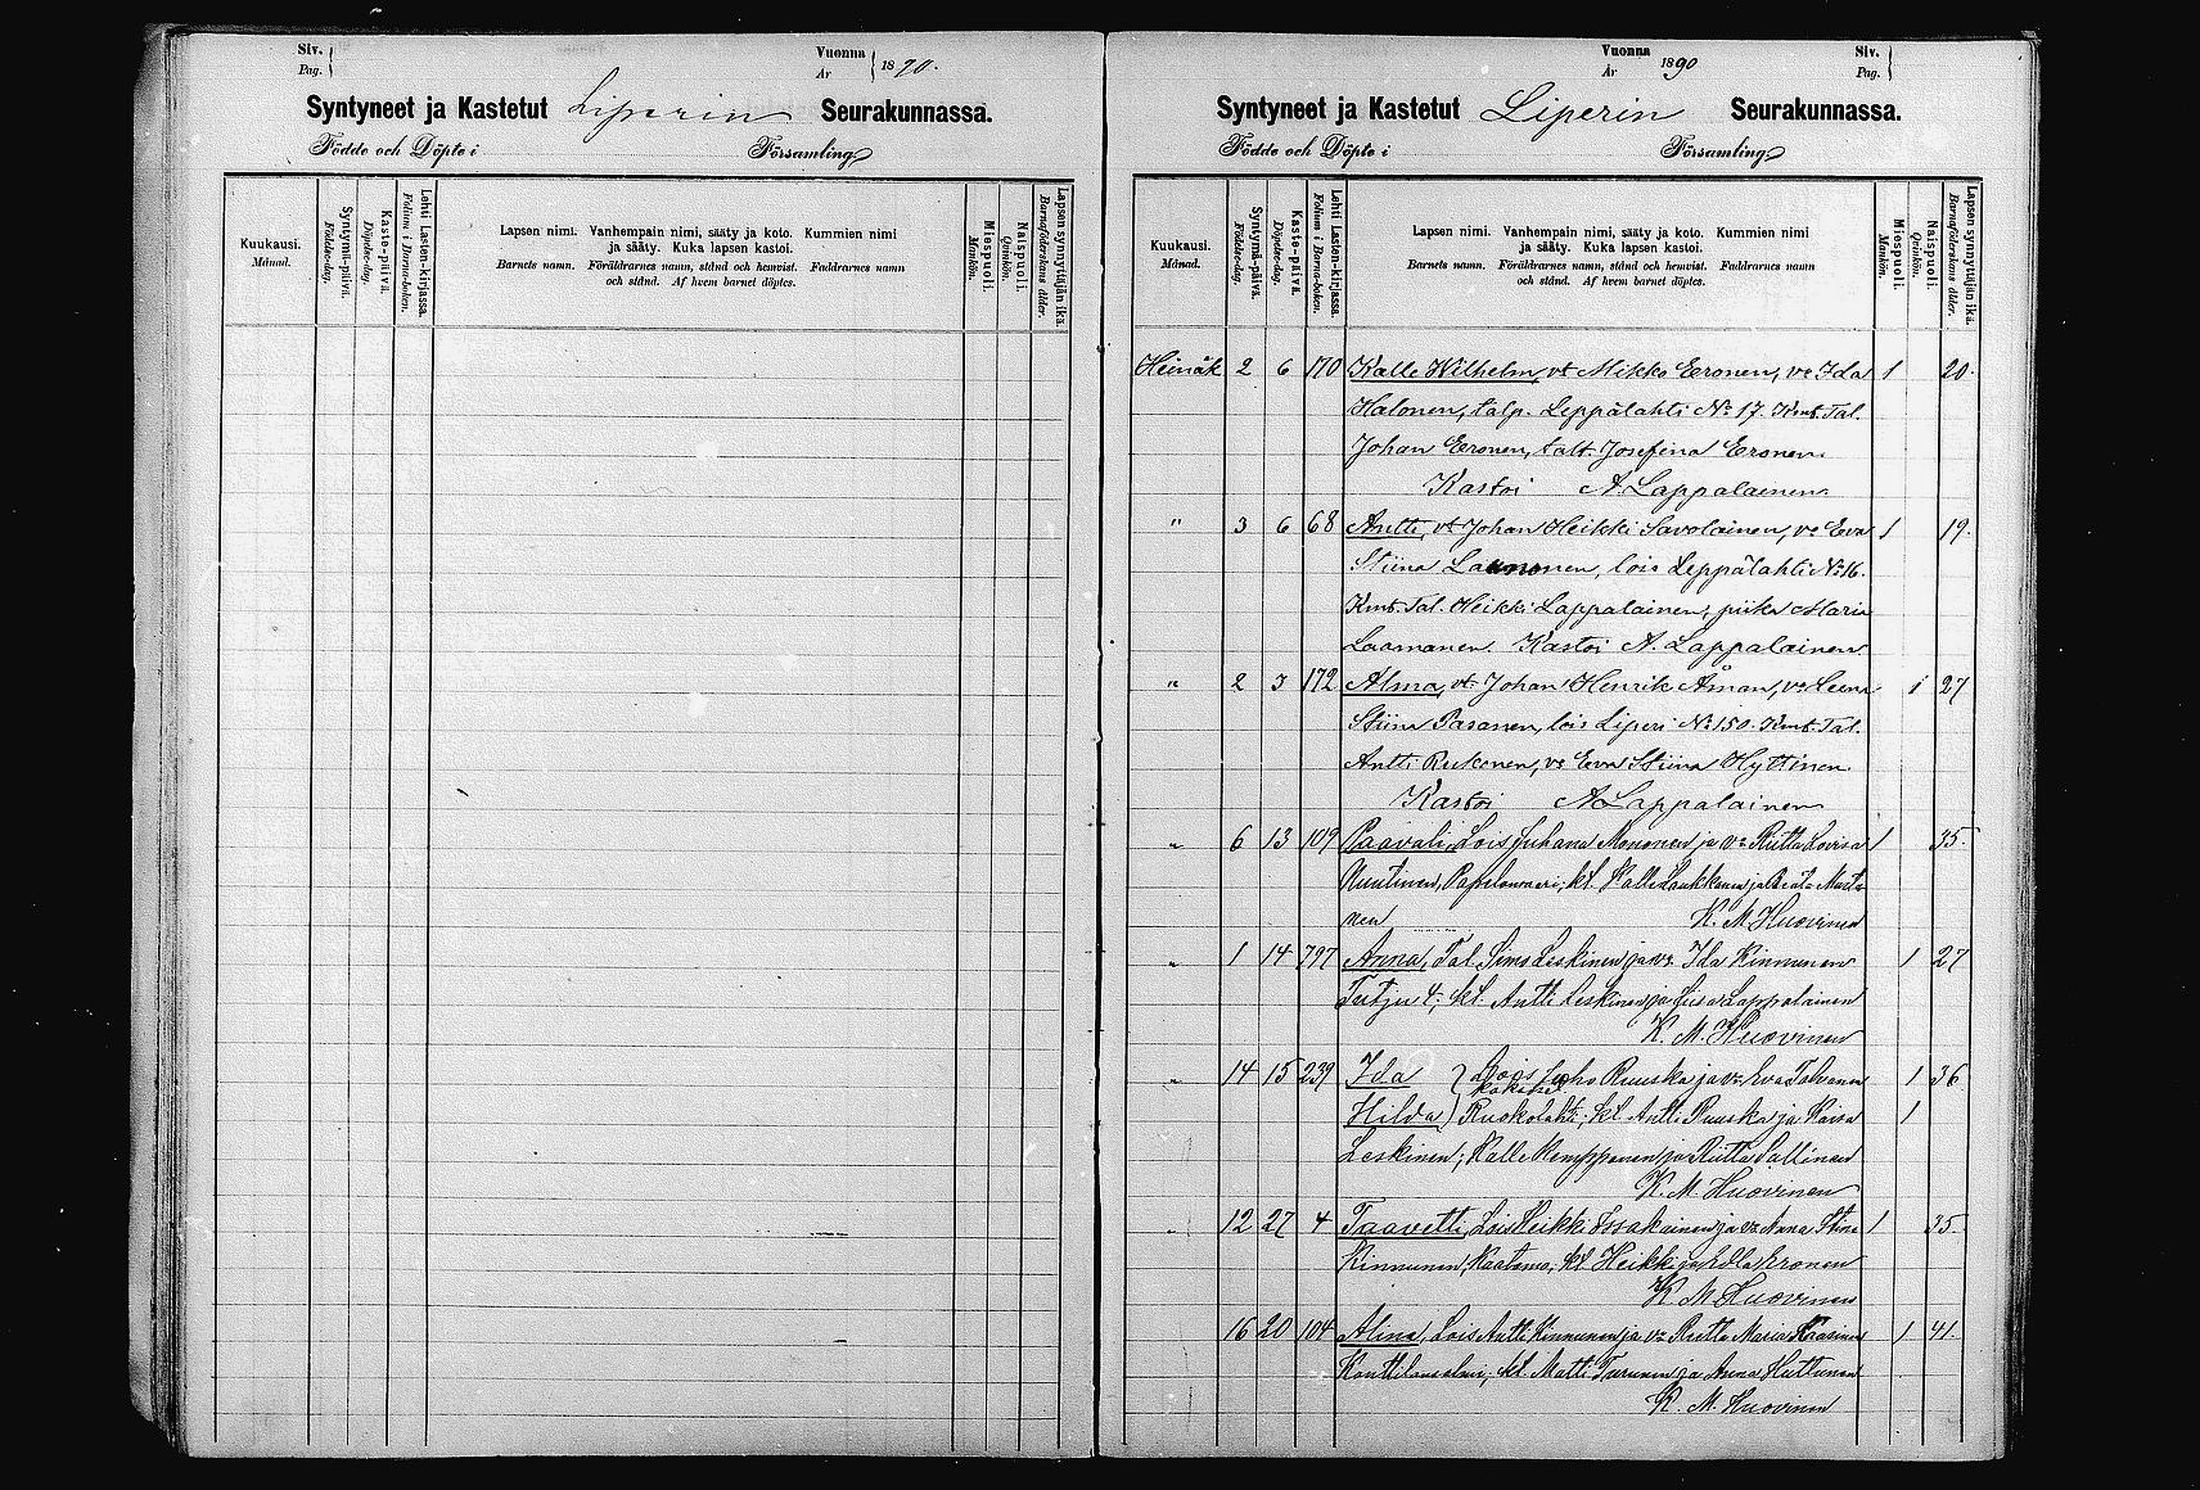 Siv.
Pag.
Vuonna
År
1890.
Syntyneet ja Kastetut Liperin Seurakunnassa.
Födde och Döpte i Församling
Kuukausi.
Månad.
Syntymä-päivä.
Födelse-dag.
Kaste-päivä.
Döpelse-dag.
Lehti Lasten-kirjassa.
Folium i Barna-boken.
Lapsen nimi. Vanhempain nimi, sääty ja koto. Kummien nimi
ja sääty. Kuka lapsen kastoi.
Barnets namn. Föräldrarnes namn, stånd och hemvist. Faddrarnes namn
och stånd. Af hvem barnet döptes.
Miespuoli.
Mankön.
Naispuoli.
Qvinkön.
Lapsen synnyttäjän ikä.
Barnaföderskans ålder.
Vuonna
År
1890
Siv.
Pag.
Syntyneet ja Kastetut Liperin Seurakunnassa.
Födde och Döpte i Församling
Kuukausi.
Månad.
Syntymä-päivä.
Födelse-dag.
Kaste-päivä.
Döpelse-dag.
Lehti Lasten-kirjassa.
Folium i Barna-boken.
Lapsen nimi. Vanhempain nimi, sääty ja koto. Kummien nimi
ja sääty. Kuka lapsen kastoi.
Barnets namn. Föräldrarnes namn, stånd och hemvist. Faddrarnes namn
och stånd. Af hvem barnet döptes.
Miespuoli.
Mankön.
Naispuoli.
Qvinkön.
Lapsen synnyttäjän ikä.
Barnaföderskans ålder.
Heinäk 2 6 170 Kalle Wilhelm, vt Mikko Eeronen, vo Ida 1 20.
Halonen, talp. Leppälahti No 17. Kmt. Tal.
Johan Eeronen, talt. Josefina Eronen.
Kastoi A. Lappalainen.
" 3 6 68 Antti, vt Johan Heikki Savolainen, vo Eeva 1 19.
Stiina Laamonen, lois Leppälahti No 16.
Kmt. Tal. Heikki Lappalainen, piika Maria
Laamanen. Kastoi A. Lappalainen.
" 2 3 172 Alma, vt. Johan Henrik Åman, vo Leena 1 27
Stiina Pasanen, lois Liperi No 150. Kmt. Tal.
Antti Rukonen, vo Eeva Stiina Hyttinen.
Kastoi A Lappalainen
" 6 13 109 Paavali, Lois Juhana Mononen ja vo Riitta Lovisa 1 35.
Nuutinen, kl. Kalle Laukkanen ja Beata Musto
nen K. M. Huovinen
" 1 14 797 Anna, Tal. Simo Leskinen ja vo Ida Kinnunen 1 27
Tutju 4; kl. Antti Leskinen ja Liisa Lappalainen
K. M. Huovinen
" 14 15 239 Ida } Lois Juho Ruuska ja vo Eva Tolvanen 1 36
kakoset
Hilda ) Ruokolahti; kl. Antti Ruuska ja Kaisa 1
Leskinen; Kalle Kemppanen ja Riitta Sallinen
K. M. Huovinen
" 12 27 4 Taavetti, Lois Heikki Issakainen ja vo Anna Stina 1 35.
Kinnunen, Kaatamo, kl. Heikki ja Adla Eronen
K. M Huovinen
16 20 104 Alina, Lois Antti Kinnunen ja vo Riitta Maria 1 41.
kl. Matti Turunen ja Anna Huttunen
K. M. Huovinen